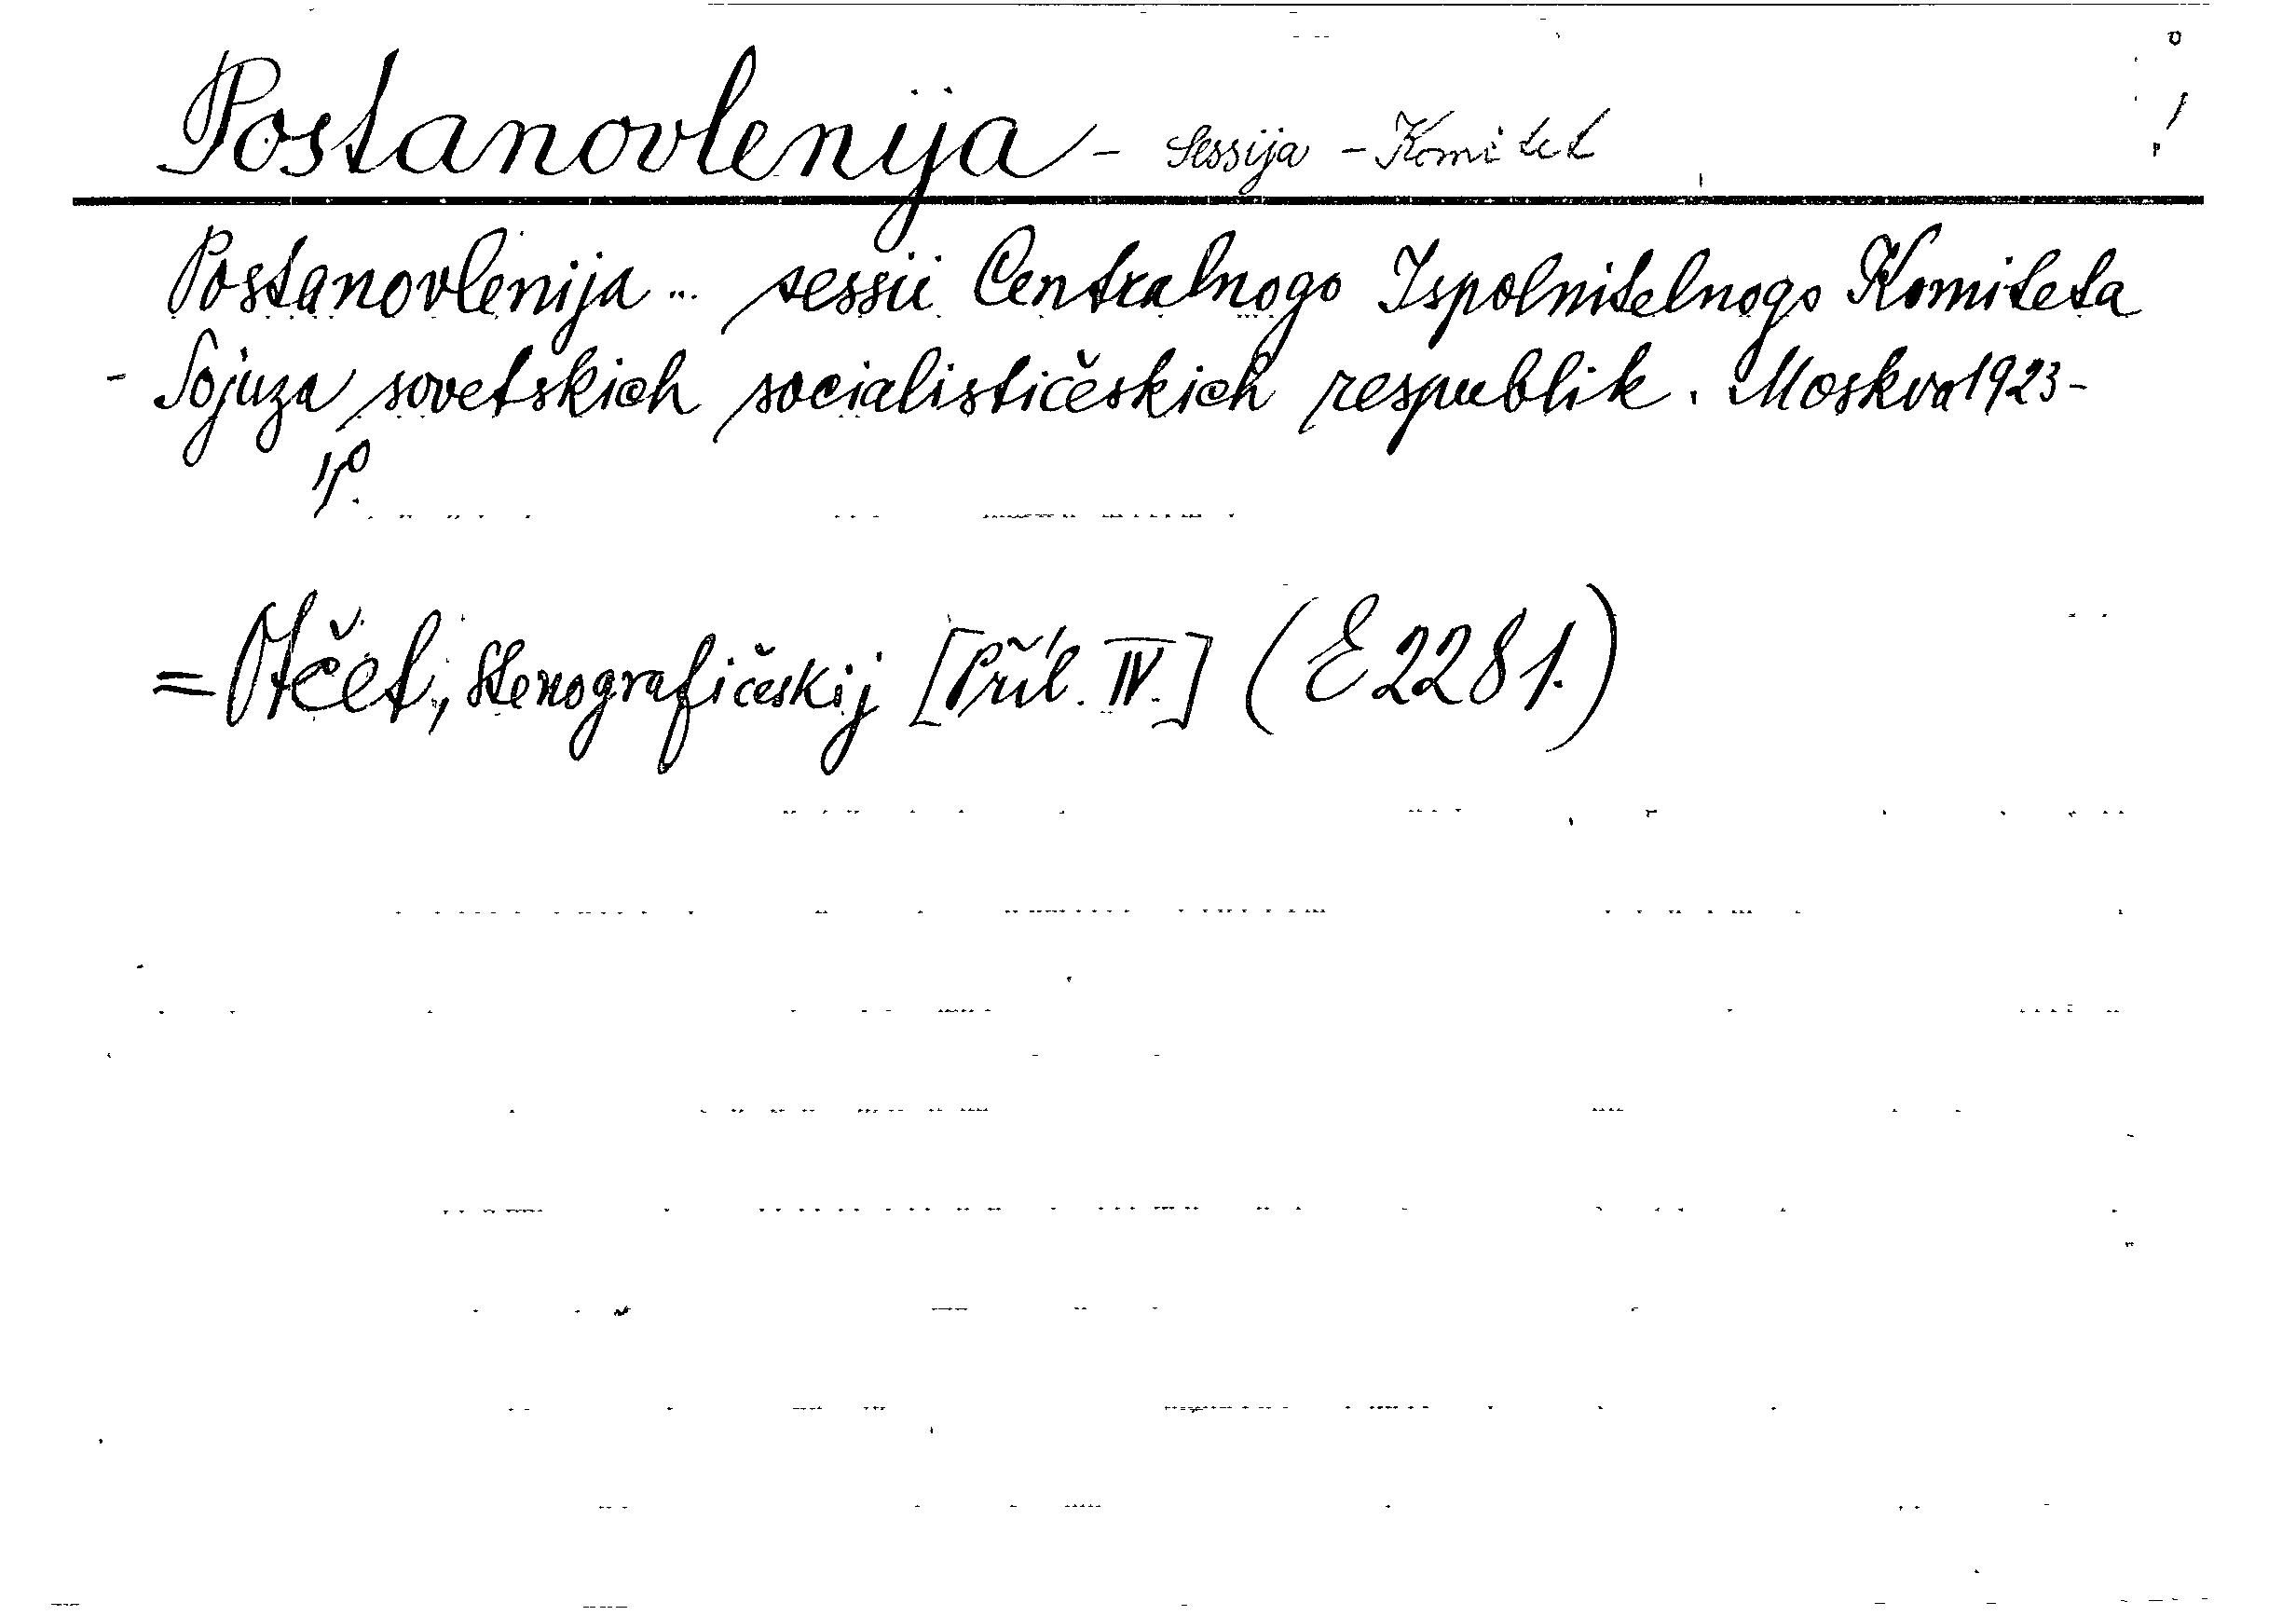 Postanovlenija - Sessija - Komitet
Postanovlenija ... sessii Centralnogo Ispolnitelnogo Komiteta
- Sojuza sovetskich socialističeskich respublik. Moskva 1923-
= Otčet, stenografičeskij [Příl. IV.] (E 2281.)